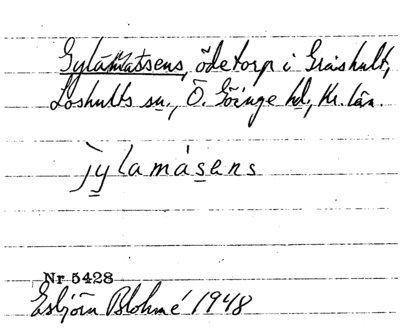 ödetorp i Gråshult,
Loshults sn., Ö. Göinge hd., Kr. län.
jylamásens
Nr 5428
Esbjörn Blohmé 1948